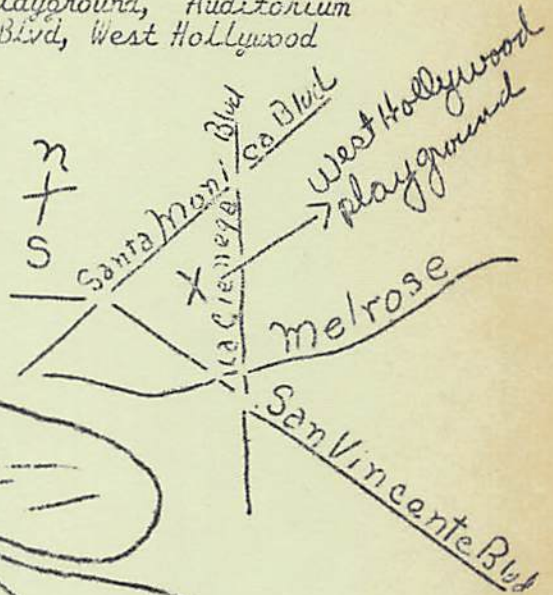 layground, Auditorium
Blvd, West Hollywood
n
S
Santa Moni ca Blvd
La Cienega Blvd
West Hollywood
playground
X
Melrose
San Vincente Blvd